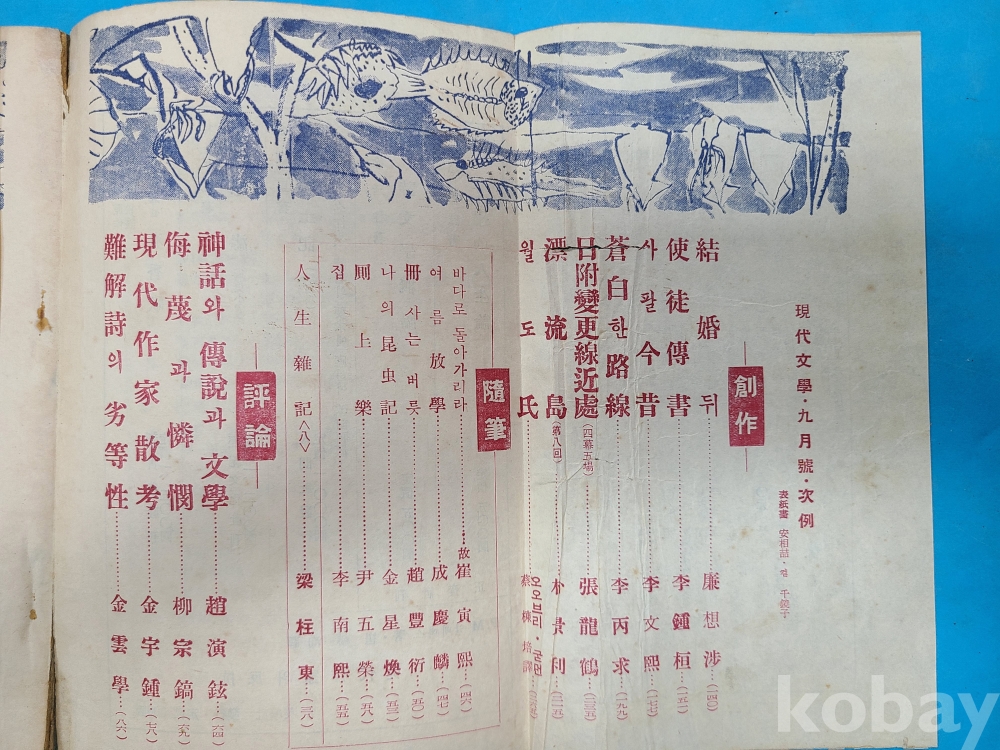 現代文學·九月號·次例
表紙畵 安相喆·컽 千鏡子
創作
結婚뒤 廉想涉
使徒傳書 李鍾桓
사팔今昔 李文熙
蒼白한路線 李丙求
日附變更線近處(四幕五場) 張龍鶴
漂流島(第八回) 朴景利
월도氏 오오브리·굳먼 蔡棟培譯
隨筆
바다로 돌아가리라 故 崔寅熙
여름放學 成慶麟
冊사는버릇 趙豐衍
나의昆虫記 金星煥
厠上樂 尹五榮
집 李南熙
人生雜記<八> 梁柱東
評論
神話와 傳說과 文學 趙演鉉
侮蔑과 憐憫 柳宗鎬
現代作家散考 金宇鍾
難解詩의 劣等性 金雲學
kobay